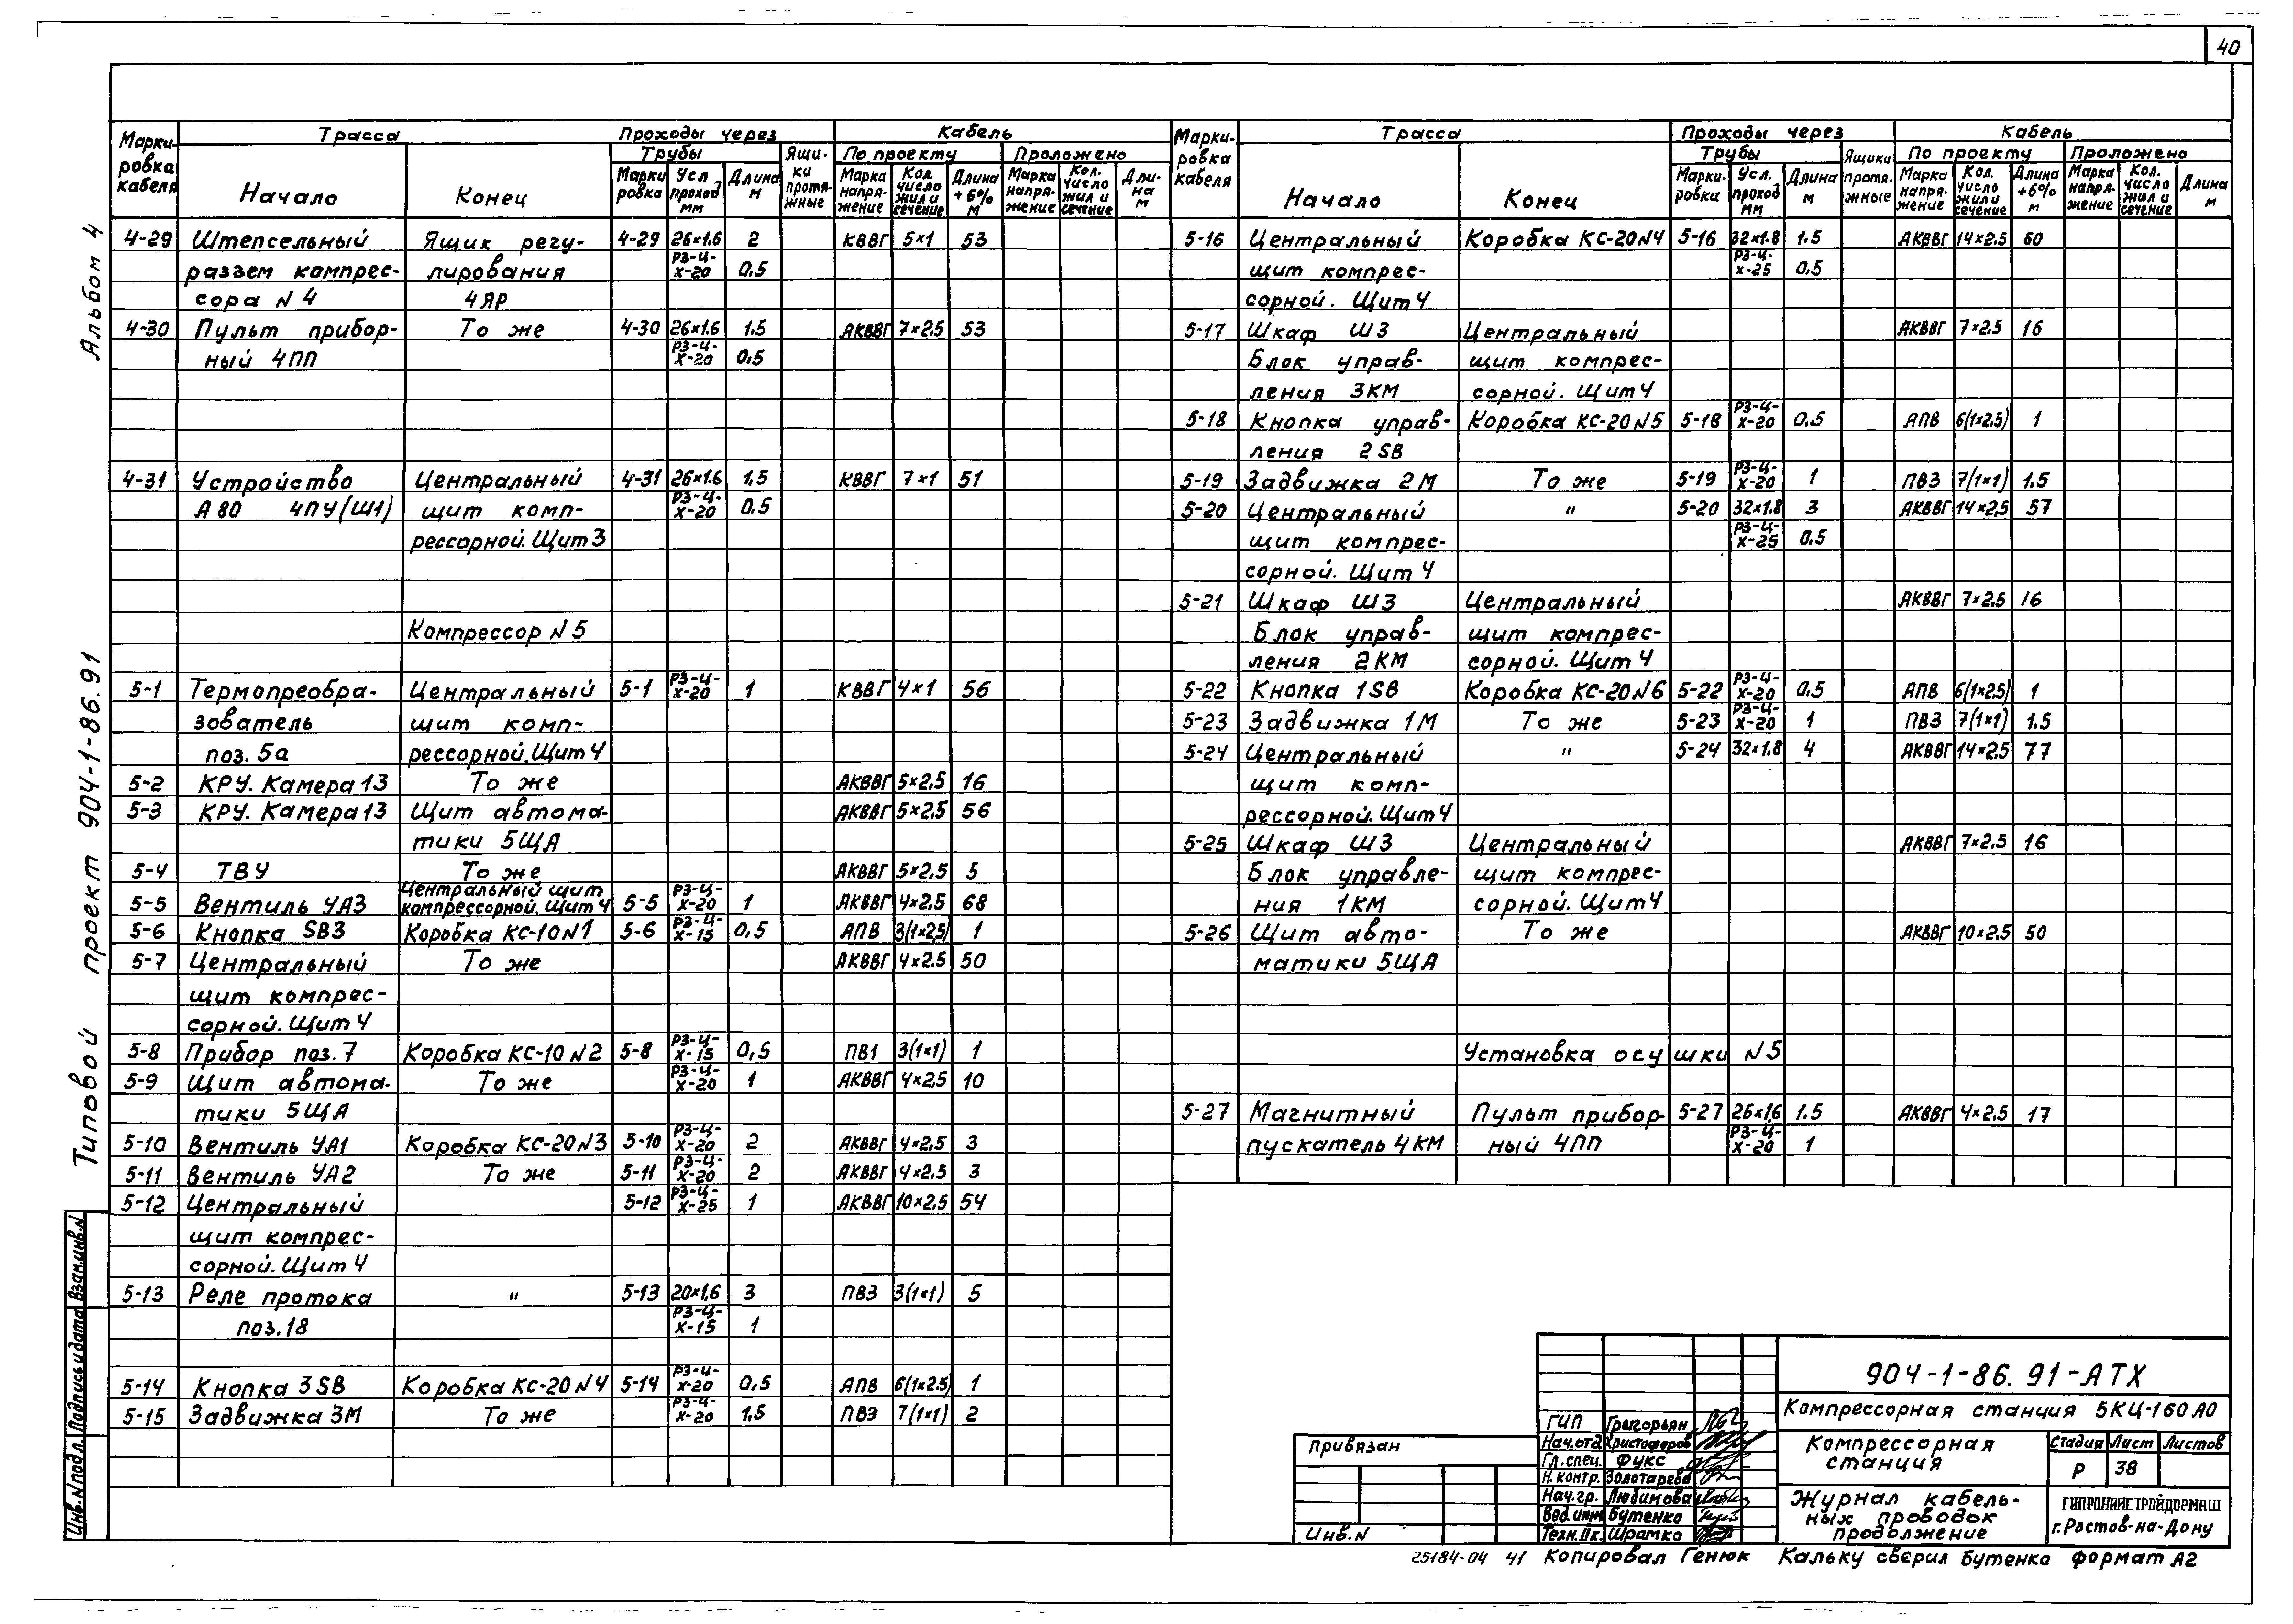 40
Альбом 4
Типовой проект 904-1-86.91
Инв.N подл. Подпись и дата Взам.инв.N
Марки- ровка кабеля Трасса Проходы через Кабель
Трубы Ящи- ки протя- жные По проекту Проложено
Начало Конец Марки ровка Усл проход мм Длина м Марка напря- жение Кол. число жил и сечение Длина +6% м Марка напря- жение Кол. число жил и сечение Дли- на м
4-29 Штепсельный Ящик регу- 4-29 26×1.6 2 КВВГ 5×1 53
разъем компрес- лирования РЗ-Ц-Х-20 0,5
сора N 4 4ЯР
4-30 Пульт прибор- То же 4-30 26×1.6 1.5 АКВВГ 7×2.5 53
ный 4ПП РЗ-Ц-Х-20 0,5
4-31 Устройство Центральный 4-31 26×1.6 1,5 КВВГ 7×1 51
А80 4ПУ(Ш1) щит комп- РЗ-Ц-Х-20 0,5
рессорной. Щит 3
Компрессор N 5
5-1 Термопреобра- Центральный 5-1 РЗ-Ц-Х-20 1 КВВГ 4×1 56
зователь щит комп-
поз. 5а рессорной. Щит 4
5-2 КРУ. Камера 13 То же АКВВГ 5×2.5 16
5-3 КРУ. Камера 13 Щит автома- АКВВГ 5×2.5 56
тики 5ЩА
5-4 ТВУ То же АКВВГ 5×2.5 5
5-5 Вентиль УА3 Центральный щит компрессорной. Щит 4 5-5 РЗ-Ц-Х-20 1 АКВВГ 4×2.5 68
5-6 Кнопка SB3 Коробка КС-10 N1 5-6 РЗ-Ц-Х-15 0,5 АПВ 3(1×2,5) 1
5-7 Центральный То же АКВВГ 4×2.5 50
щит компрес-
сорной. Щит 4
5-8 Прибор поз. 7 Коробка КС-10 N2 5-8 РЗ-Ц-Х-15 0,5 ПВ1 3(1×1) 1
5-9 Щит автома- То же РЗ-Ц-Х-20 1 АКВВГ 4×2,5 10
тики 5ЩА
5-10 Вентиль УА1 Коробка КС-20 N3 5-10 РЗ-Ц-Х-20 2 АКВВГ 4×2,5 3
5-11 Вентиль УА2 То же 5-11 РЗ-Ц-Х-20 2 АКВВГ 4×2,5 3
5-12 Центральный 5-12 РЗ-Ц-Х-25 1 АКВВГ 10×2.5 54
щит компрес-
сорной. Щит 4
5-13 Реле протока " 5-13 20×1,6 3 ПВ3 3(1×1) 5
поз. 18 РЗ-Ц-Х-15 1
5-14 Кнопка 3SB Коробка КС-20 N4 5-14 РЗ-Ц-Х-20 0,5 АПВ 6(1×2.5) 1
5-15 Задвижка 3М То же РЗ-Ц-Х-20 1,5 ПВ3 7(1×1) 2
Марки- ровка кабеля Трасса Проходы через Кабель
Трубы Ящики протя- жные По проекту Проложено
Начало Конец Марки- ровка Усл. проход мм Длина м Марка напря- жение Кол. число жил и сечение Длина +6% м Марка напря- жение Кол. число жил и сечение Длина м
5-16 Центральный Коробка КС-20 N4 5-16 32×1.8 1.5 АКВВГ 14×2.5 60
щит компрес- РЗ-Ц-Х-25 0,5
сорной. Щит 4
5-17 Шкаф Ш3 Центральный АКВВГ 7×2.5 16
Блок управ- щит компрес-
ления 3КМ сорной. Щит 4
5-18 Кнопка управ- Коробка КС-20 N5 5-18 РЗ-Ц-Х-20 0,5 АПВ 6(1×2,5) 1
ления 2SB
5-19 Задвижка 2М То же 5-19 РЗ-Ц-Х-20 1 ПВ3 7(1×1) 1.5
5-20 Центральный " 5-20 32×1.8 3 АКВВГ 14×2,5 57
щит компрес- РЗ-Ц-Х-25 0,5
сорной. Щит 4
5-21 Шкаф Ш3 Центральный АКВВГ 7×2,5 16
Блок управ- щит компрес-
ления 2КМ сорной. Щит 4
5-22 Кнопка 1SB Коробка КС-20 N6 5-22 РЗ-Ц-Х-20 0,5 АПВ 6(1×2,5) 1
5-23 Задвижка 1М То же 5-23 РЗ-Ц-Х-20 1 ПВ3 7(1×1) 1.5
5-24 Центральный " 5-24 32×1.8 4 АКВВГ 14×2,5 77
щит комп-
рессорной. Щит 4
5-25 Шкаф Ш3 Центральный АКВВГ 7×2.5 16
Блок управле- щит компрес-
ния 1КМ сорной. Щит 4
5-26 Щит авто- То же АКВВГ 10×2,5 50
матики 5ЩА
Установка осушки N 5
5-27 Магнитный Пульт прибор- 5-27 26×1,6 1.5 АКВВГ 4×2,5 17
пускатель 4КМ ный 4ПП РЗ-Ц-Х-20 1
Привязан
Инв.N
ГИП Григорьян
Нач.отд Христофоров
Гл.спец. Фукс
Н.контр. Золотарева
Нач.гр. Людимова
Вед.инж Бутенко
Техн.IIк. Шрамко
904-1-86.91-АТХ
Компрессорная станция 5КЦ-160А0
Компрессорная станция
Стадия Лист Листов
Р 38
Журнал кабель-
ных проводок
продолжение
ГИПРОНИИСТРОЙДОРМАШ
г. Ростов-на-Дону
25184-04 41 Копировал Генюк Кальку сверил Бутенко формат А2